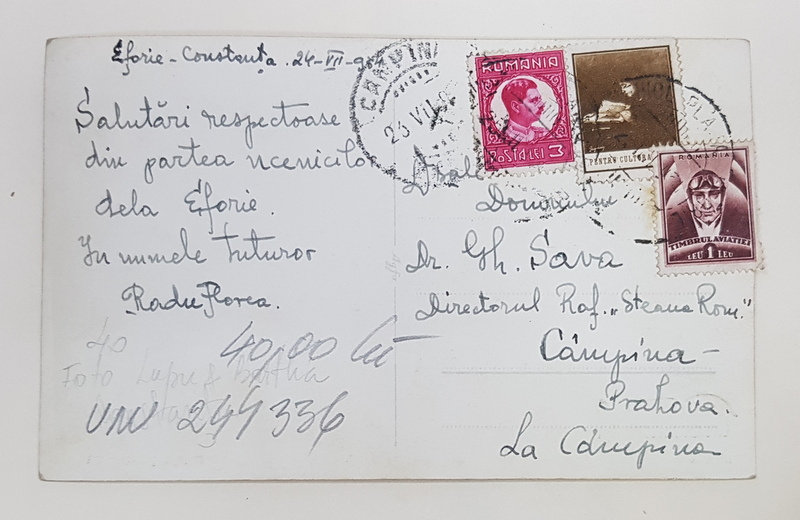 Eforie-Constanța. 24-VII-
Salutări respectoase
din partea ucenicilor
dela Eforie.
În numele tuturor
Radu Florea.
40
40,00 lei
Foto Lupu & Bertha
UNV 244336
CAMPINA
ROMANIA
POSTA LEI 3
PENTRU CULTURA
ROMANIA
TIMBRUL AVIATIEI
LEU 1 LEU
Domnului
Dr. Gh. Sava
Directorul Raf. „Steaua Rom."
Câmpina-
Prahova.
La Câmpina